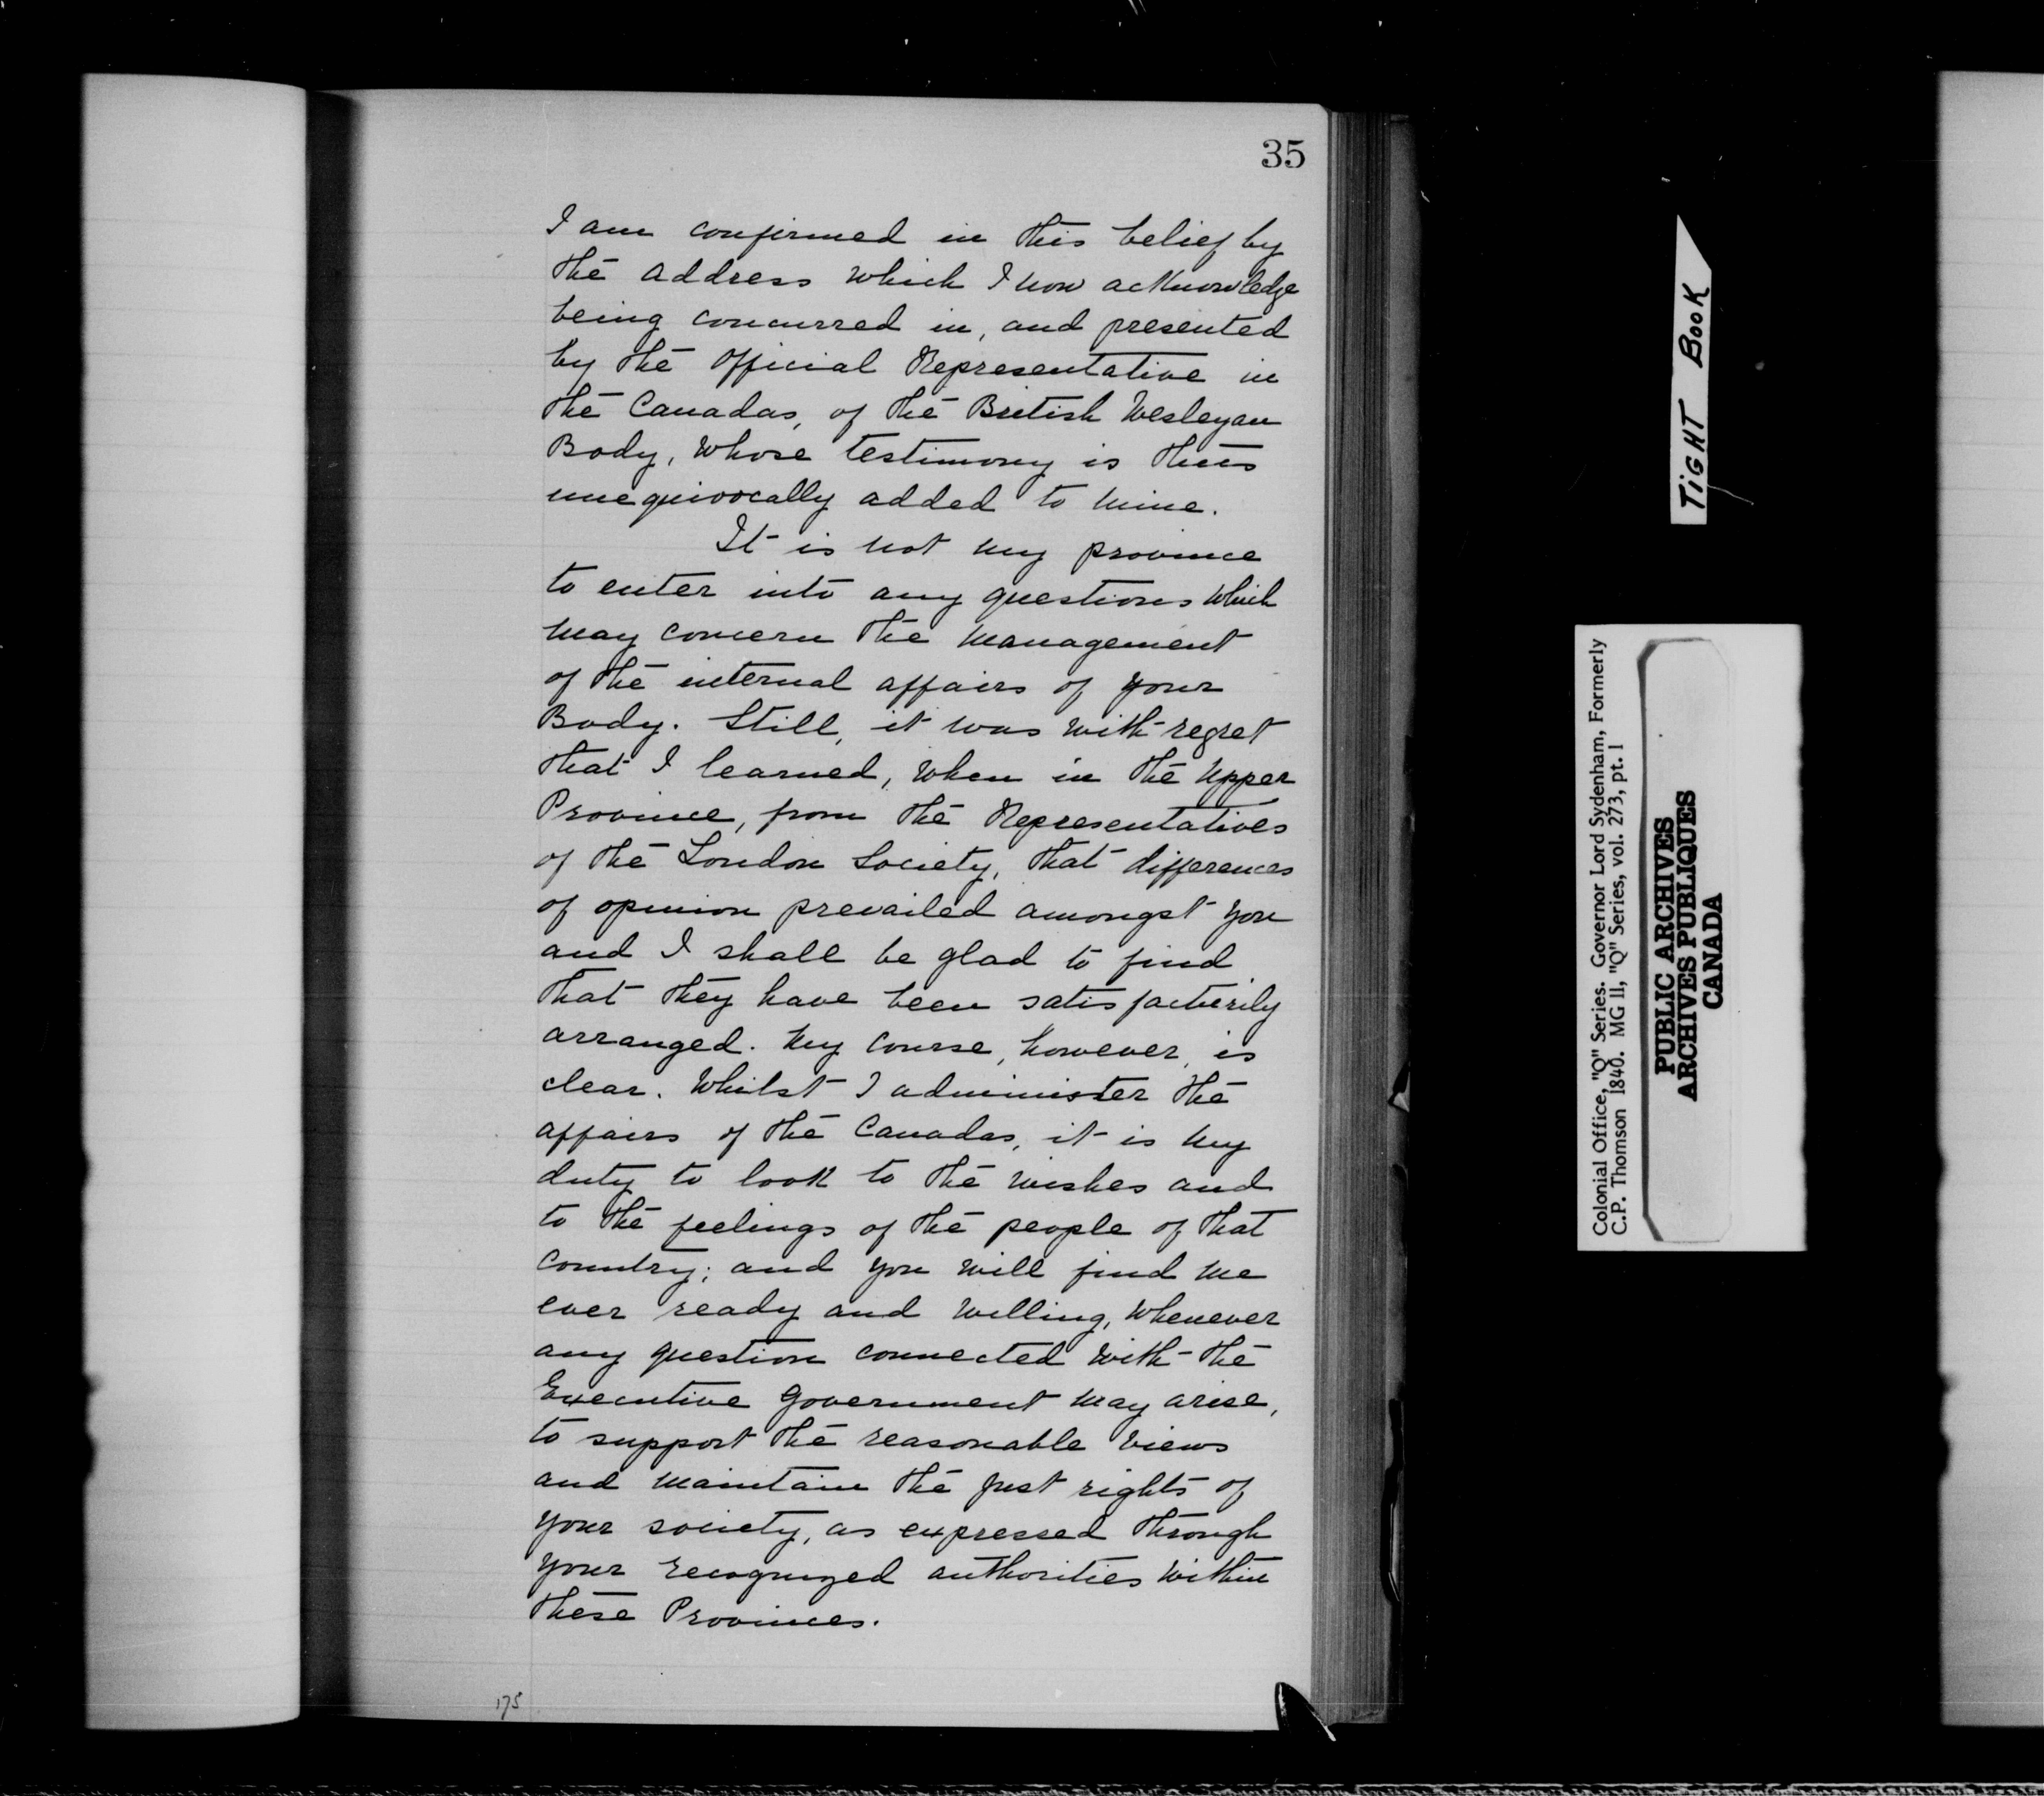 35
I am confirmed in this belief by
the address which I now acknowledge
being concurred in, and presented
by the Official Representative in
the Canadas, of the British Wesleyan
Body, whose testimony is thus
unequivocally added to mine.
It is not my province
to enter into any questions which
may concern the management
of the internal affairs of your
Body. Still, it was with regret
that I learned, when in the Upper
Province, from the Representatives
of the London Society, that differences
of opinion prevailed amongst you
and I shall be glad to find
that they have been satisfactorily
arranged. My course, however, is
clear. Whilst I administer the
affairs of the Canadas, it is my
duty to look to the wishes and
to the feelings of the people of that
country; and you will find me
ever ready and willing, whenever
any question connected with the
Executive Government may arise,
to support the reasonable views
and maintain the just rights of
your society, as expressed through
your recognized authorities within
these Provinces.
175
TIGHT BOOK
Colonial Office, "Q" Series. Governor Lord Sydenham, Formerly
C.P. Thomson 1840. MG 11, "Q" Series, vol. 273, pt. 1
PUBLIC ARCHIVES
ARCHIVES PUBLIQUES
CANADA